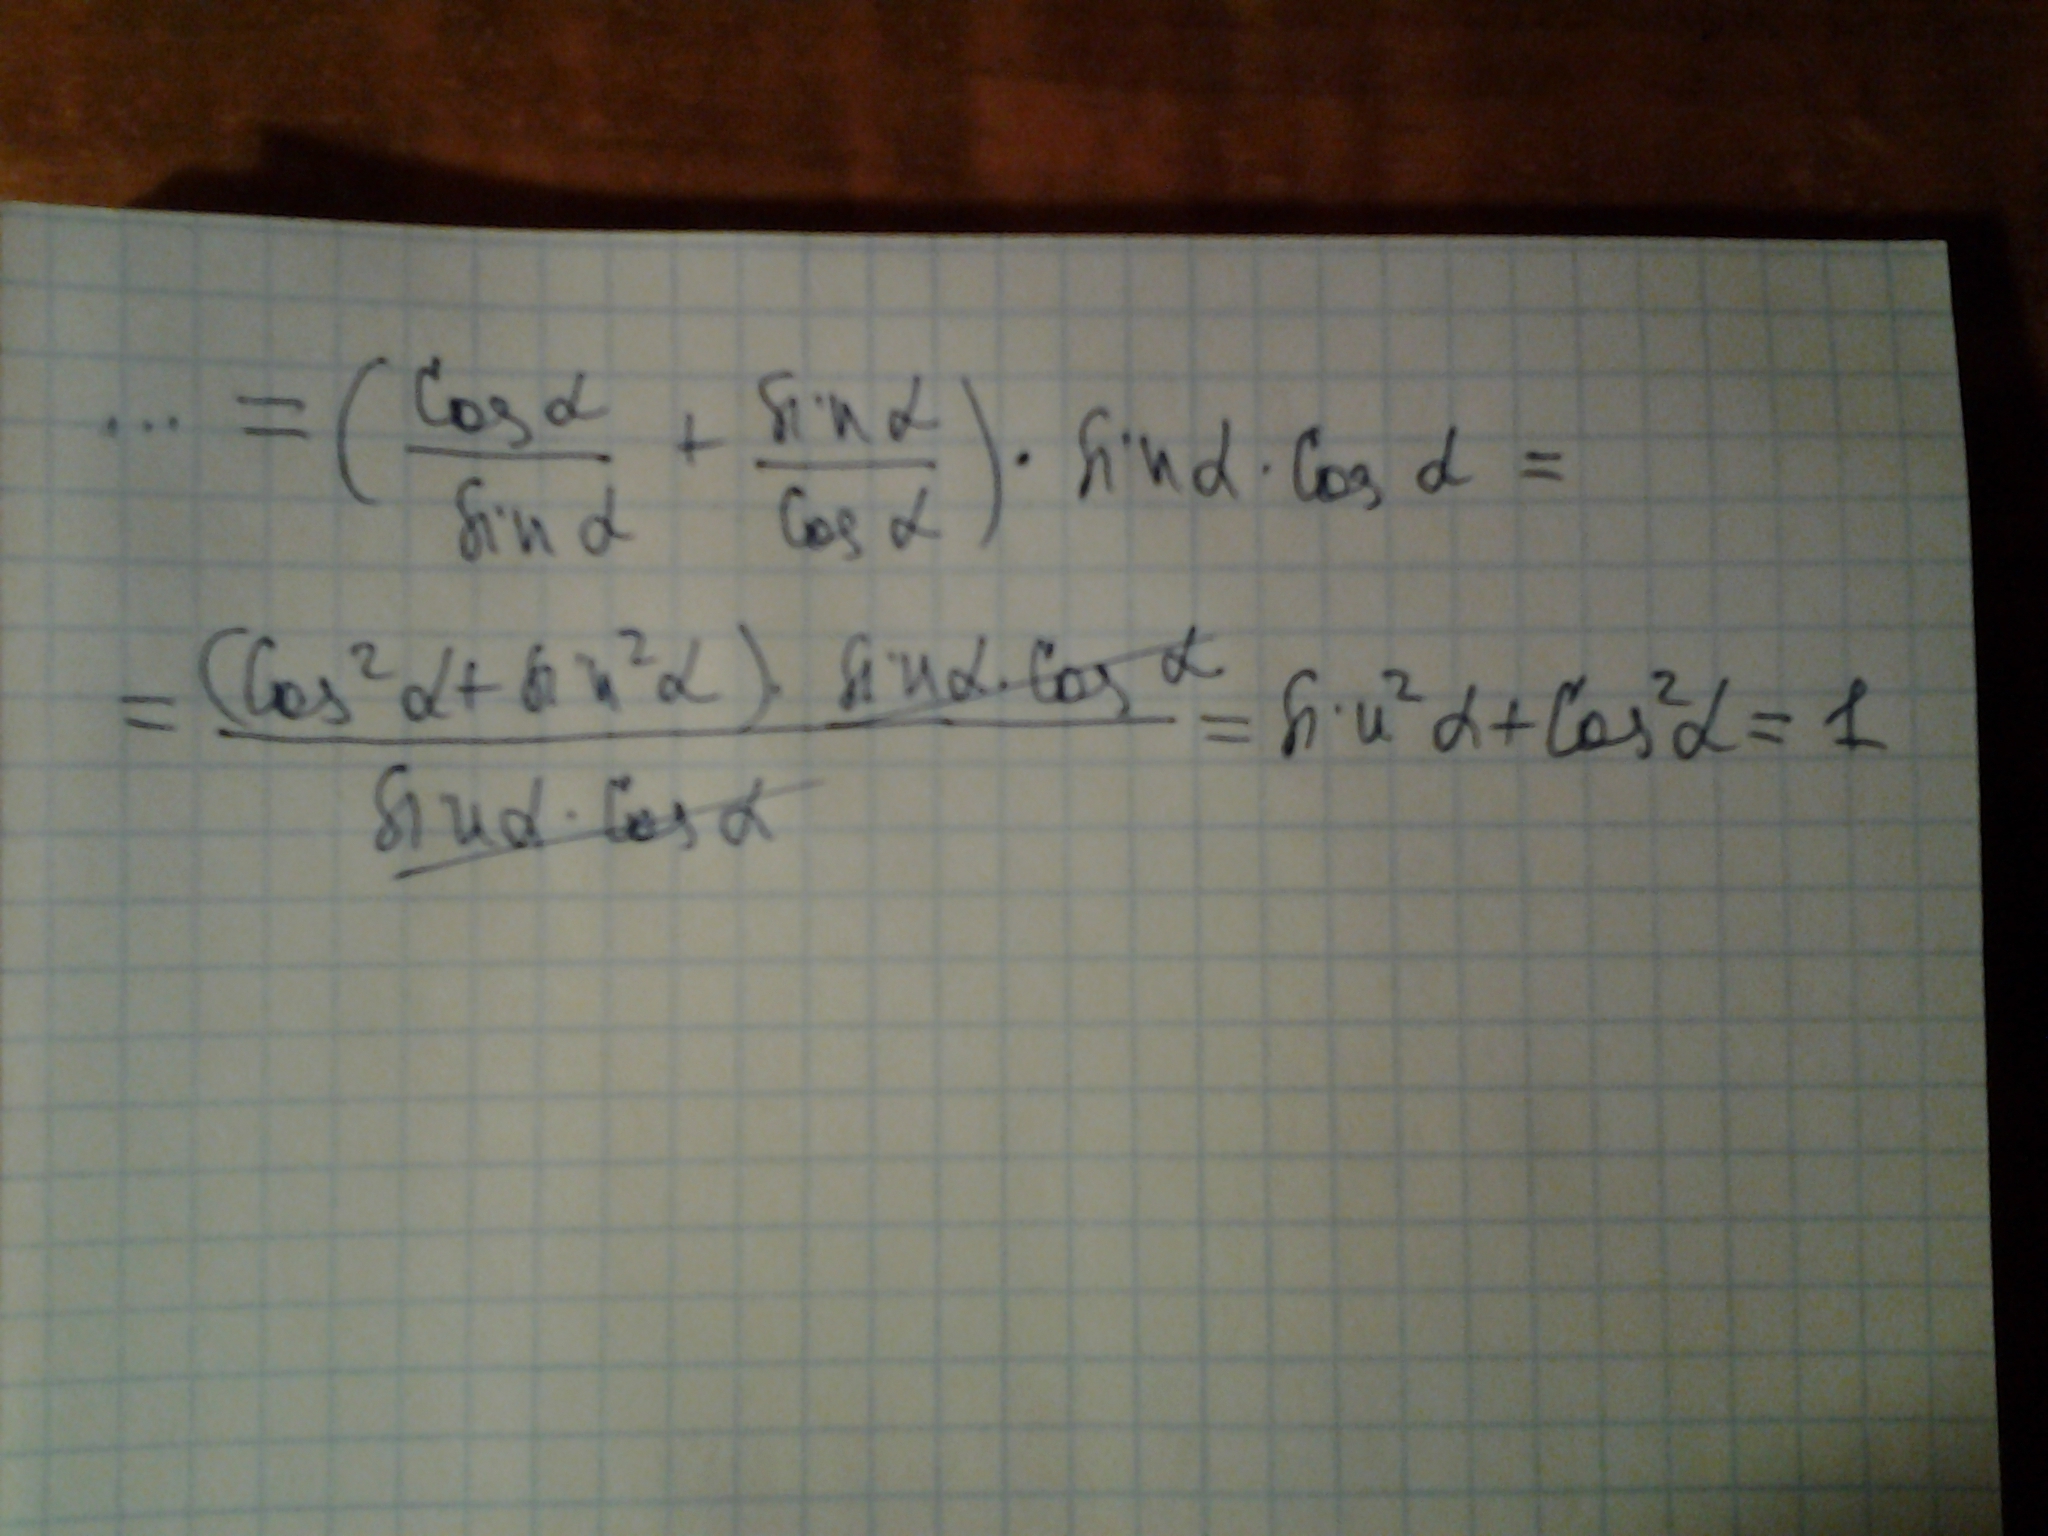 ... = (cos α / sin α + sin α / cos α) · sin α · cos α =
= (cos² α + sin² α) · sin α · cos α / sin α · cos α = sin² α + cos² α = 1